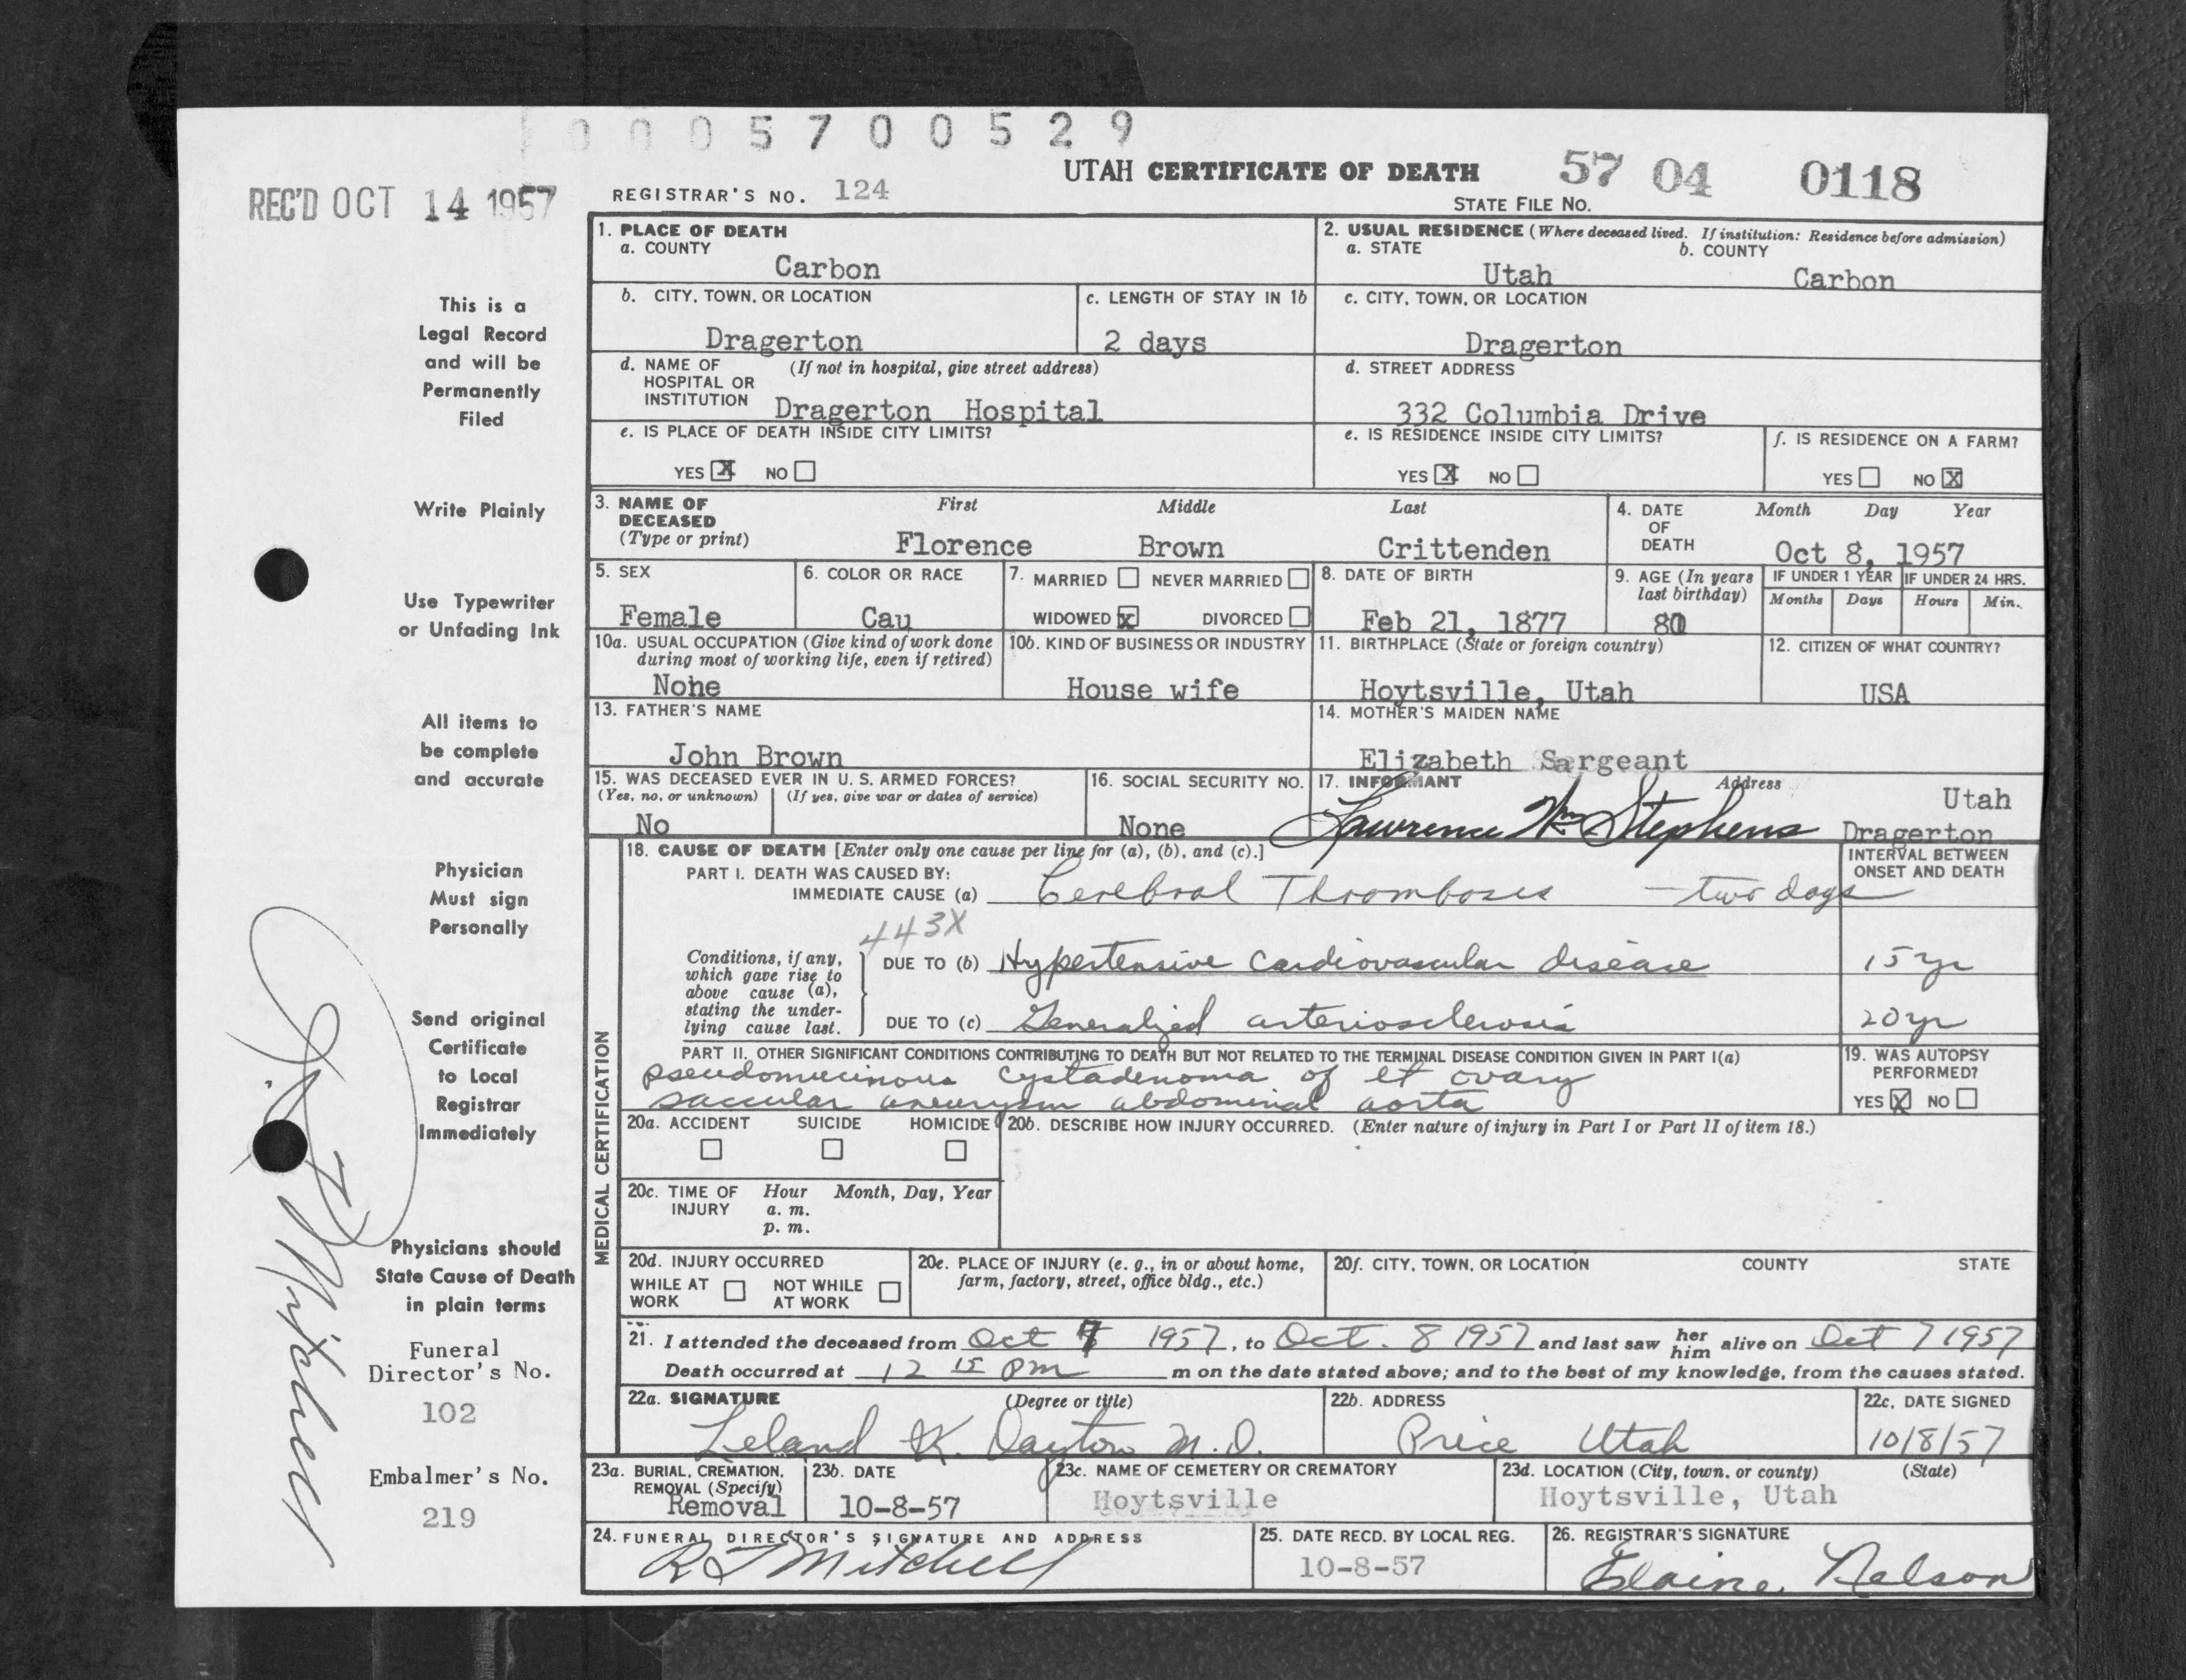 0 0 0 5 7 0 0 5 2 9
UTAH CERTIFICATE OF DEATH 57 04 0118
REC'D OCT 14 1957 REGISTRAR'S NO. 124
STATE FILE NO.
1. PLACE OF DEATH
a. COUNTY
Carbon
2. USUAL RESIDENCE (Where deceased lived. If institution: Residence before admission)
a. STATE b. COUNTY
Utah Carbon
b. CITY, TOWN, OR LOCATION
Dragerton
c. LENGTH OF STAY IN 1b
2 days
c. CITY, TOWN, OR LOCATION
Dragerton
d. NAME OF (If not in hospital, give street address)
HOSPITAL OR
INSTITUTION Dragerton Hospital
d. STREET ADDRESS
332 Columbia Drive
e. IS PLACE OF DEATH INSIDE CITY LIMITS?
YES X NO
e. IS RESIDENCE INSIDE CITY LIMITS?
YES X NO
f. IS RESIDENCE ON A FARM?
YES NO X
3. NAME OF First Middle Last
DECEASED
(Type or print) Florence Brown Crittenden
4. DATE Month Day Year
OF
DEATH Oct 8, 1957
5. SEX
Female
6. COLOR OR RACE
Cau
7. MARRIED NEVER MARRIED
WIDOWED X DIVORCED
8. DATE OF BIRTH
Feb 21, 1877
9. AGE (In years
last birthday)
80
IF UNDER 1 YEAR IF UNDER 24 HRS.
Months Days Hours Min.
10a. USUAL OCCUPATION (Give kind of work done
during most of working life, even if retired)
None
10b. KIND OF BUSINESS OR INDUSTRY
House wife
11. BIRTHPLACE (State or foreign country)
Hoytsville, Utah
12. CITIZEN OF WHAT COUNTRY?
USA
13. FATHER'S NAME
John Brown
14. MOTHER'S MAIDEN NAME
Elizabeth Sargeant
15. WAS DECEASED EVER IN U. S. ARMED FORCES?
(Yes, no, or unknown) (If yes, give war or dates of service)
No
16. SOCIAL SECURITY NO.
None
17. INFORMANT Address
Utah
Lawrence Wm Stephens Dragerton
18. CAUSE OF DEATH [Enter only one cause per line for (a), (b), and (c).]
INTERVAL BETWEEN
ONSET AND DEATH
PART I. DEATH WAS CAUSED BY:
IMMEDIATE CAUSE (a) Cerebral Thrombosis - two days
443X
Conditions, if any,
which gave rise to
above cause (a),
stating the under-
lying cause last.
DUE TO (b) Hypertensive cardiovascular disease 15 yr
DUE TO (c) Generalized arteriosclerosis 20 yr
PART II. OTHER SIGNIFICANT CONDITIONS CONTRIBUTING TO DEATH BUT NOT RELATED TO THE TERMINAL DISEASE CONDITION GIVEN IN PART I(a)
pseudomucinous cystadenoma of lt ovary
saccular aneurysm abdominal aorta
19. WAS AUTOPSY
PERFORMED?
YES X NO
MEDICAL CERTIFICATION
20a. ACCIDENT SUICIDE HOMICIDE
20b. DESCRIBE HOW INJURY OCCURRED. (Enter nature of injury in Part I or Part II of item 18.)
20c. TIME OF Hour Month, Day, Year
INJURY a. m.
p. m.
20d. INJURY OCCURRED
WHILE AT NOT WHILE
WORK AT WORK
20e. PLACE OF INJURY (e. g., in or about home,
farm, factory, street, office bldg., etc.)
20f. CITY, TOWN, OR LOCATION COUNTY STATE
21. I attended the deceased from Oct 7 1957, to Oct. 8 1957 and last saw her him alive on Oct 7 1957
Death occurred at 12 15 pm m on the date stated above; and to the best of my knowledge, from the causes stated.
22a. SIGNATURE (Degree or title)
Leland K. Dayton M.D.
22b. ADDRESS
Price Utah
22c. DATE SIGNED
10/8/57
23a. BURIAL, CREMATION,
REMOVAL (Specify)
Removal
23b. DATE
10-8-57
23c. NAME OF CEMETERY OR CREMATORY
Hoytsville
23d. LOCATION (City, town, or county) (State)
Hoytsville, Utah
24. FUNERAL DIRECTOR'S SIGNATURE AND ADDRESS
R J Mitchell
25. DATE RECD. BY LOCAL REG.
10-8-57
26. REGISTRAR'S SIGNATURE
Elaine Nelson
This is a
Legal Record
and will be
Permanently
Filed
Write Plainly
Use Typewriter
or Unfading Ink
All items to
be complete
and accurate
Physician
Must sign
Personally
Send original
Certificate
to Local
Registrar
Immediately
Physicians should
State Cause of Death
in plain terms
Funeral
Director's No.
102
Embalmer's No.
219
Mitchell